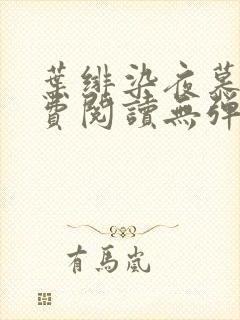 葉緋染夜慕
費閱讀無彈
有馬嵐